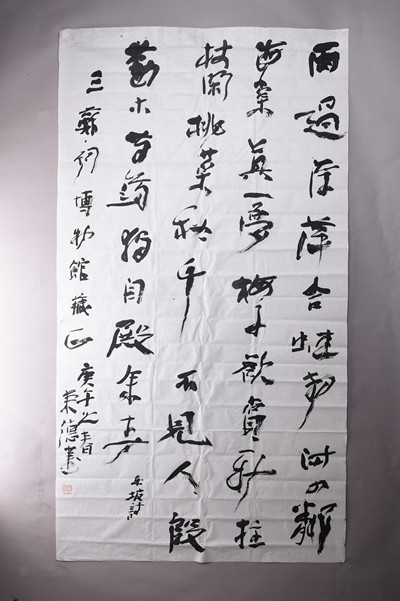 雨過浮萍合蛙聲滿四鄰
海棠真一夢梅子欲嘗新拄
杖閑挑菜秋千不見人殷
勤木芍藥獨自殿余春
東坡詩
三蘇祠博物館藏正
庚午之春日